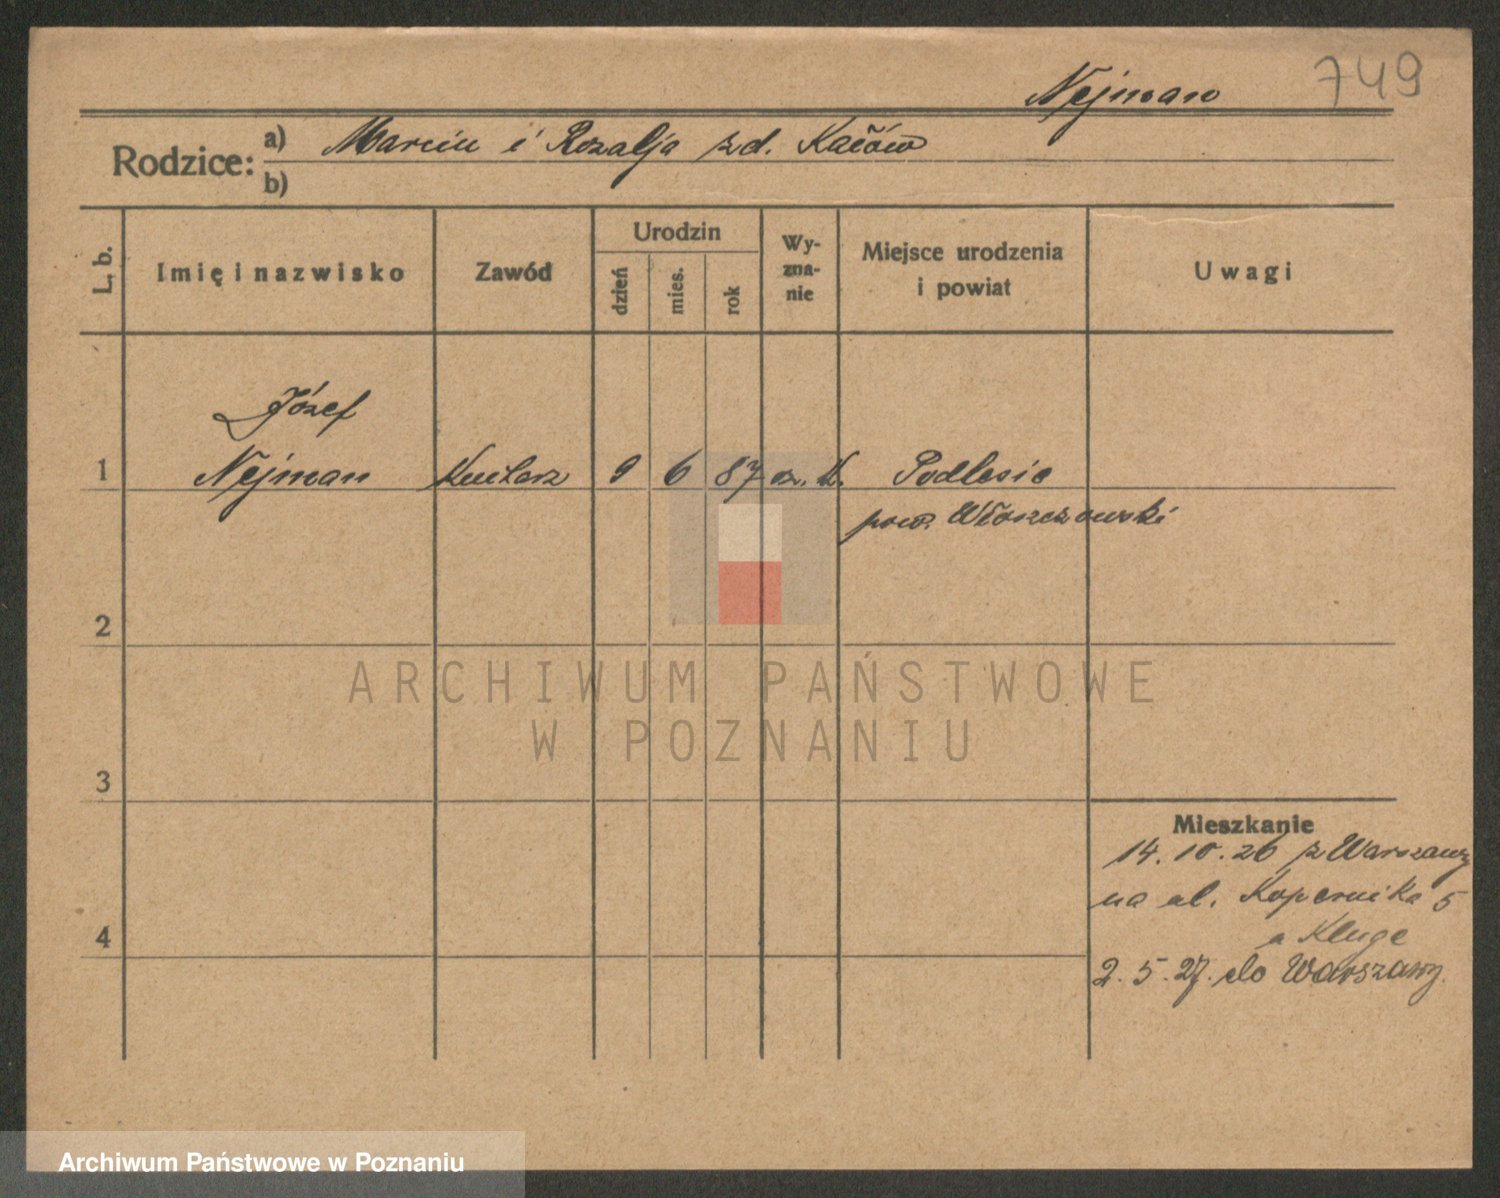 Nejman 749
Rodzice: a) Marcin i Rozalja zd.
b)
L. b. Imię i nazwisko Zawód Urodzin dzień mies. rok Wy-zna-nie Miejsce urodzenia i powiat Uwagi
Józef
1 Nejman 9 6 87 rz. k. Podlesie
pow. Włoszczowski
2
ARCHIWUM PAŃSTWOWE
W POZNANIU
3
Mieszkanie
14.10.26 z Warszawy
na ul. Kopernika 5
4 a Kluge
2.5.27. do Warszawy.
Archiwum Państwowe w Poznaniu